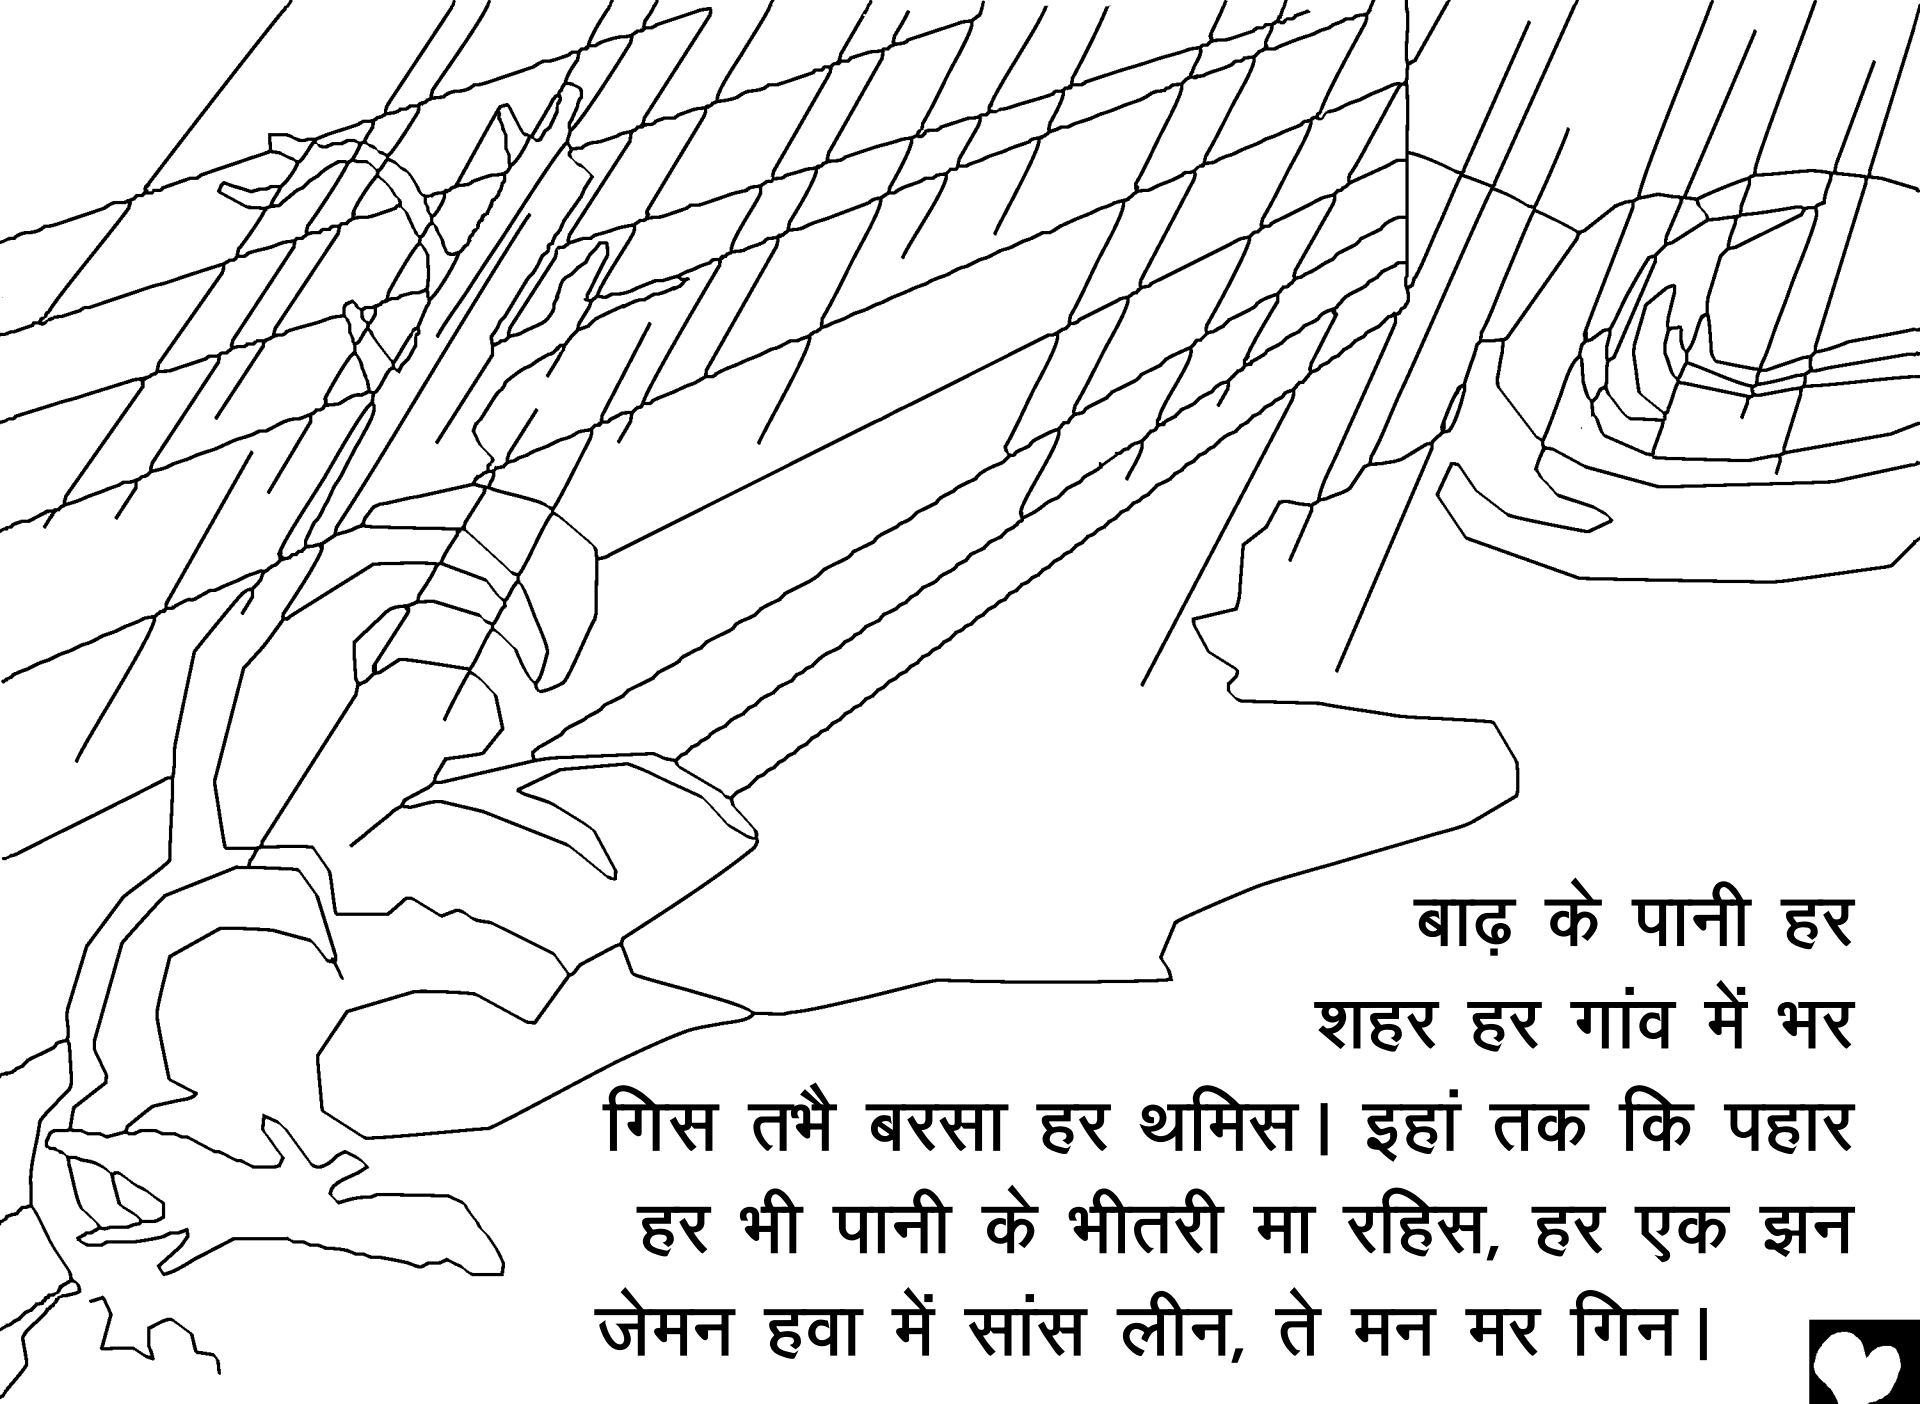 बाढ़ के पानी हर
शहर हर गांव में भर
गिस तभै बरसा हर थमिस। इहां तक कि पहार
हर भी पानी के भीतरी मा रहिस, हर एक झन
जेमन हवा में सांस लीन, ते मन मर गिन।